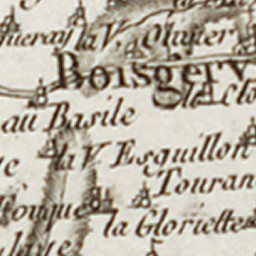 la V. Olivier
Boisgerv
le Clo
au Basile
la V. Esquillon
Touran
Touque
la Gloriette